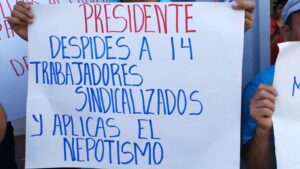 PRESIDENTE
DESPIDES A 14
TRABAJADORES
SINDICALIZADOS
Y APLICAS EL
NEPOTISMO